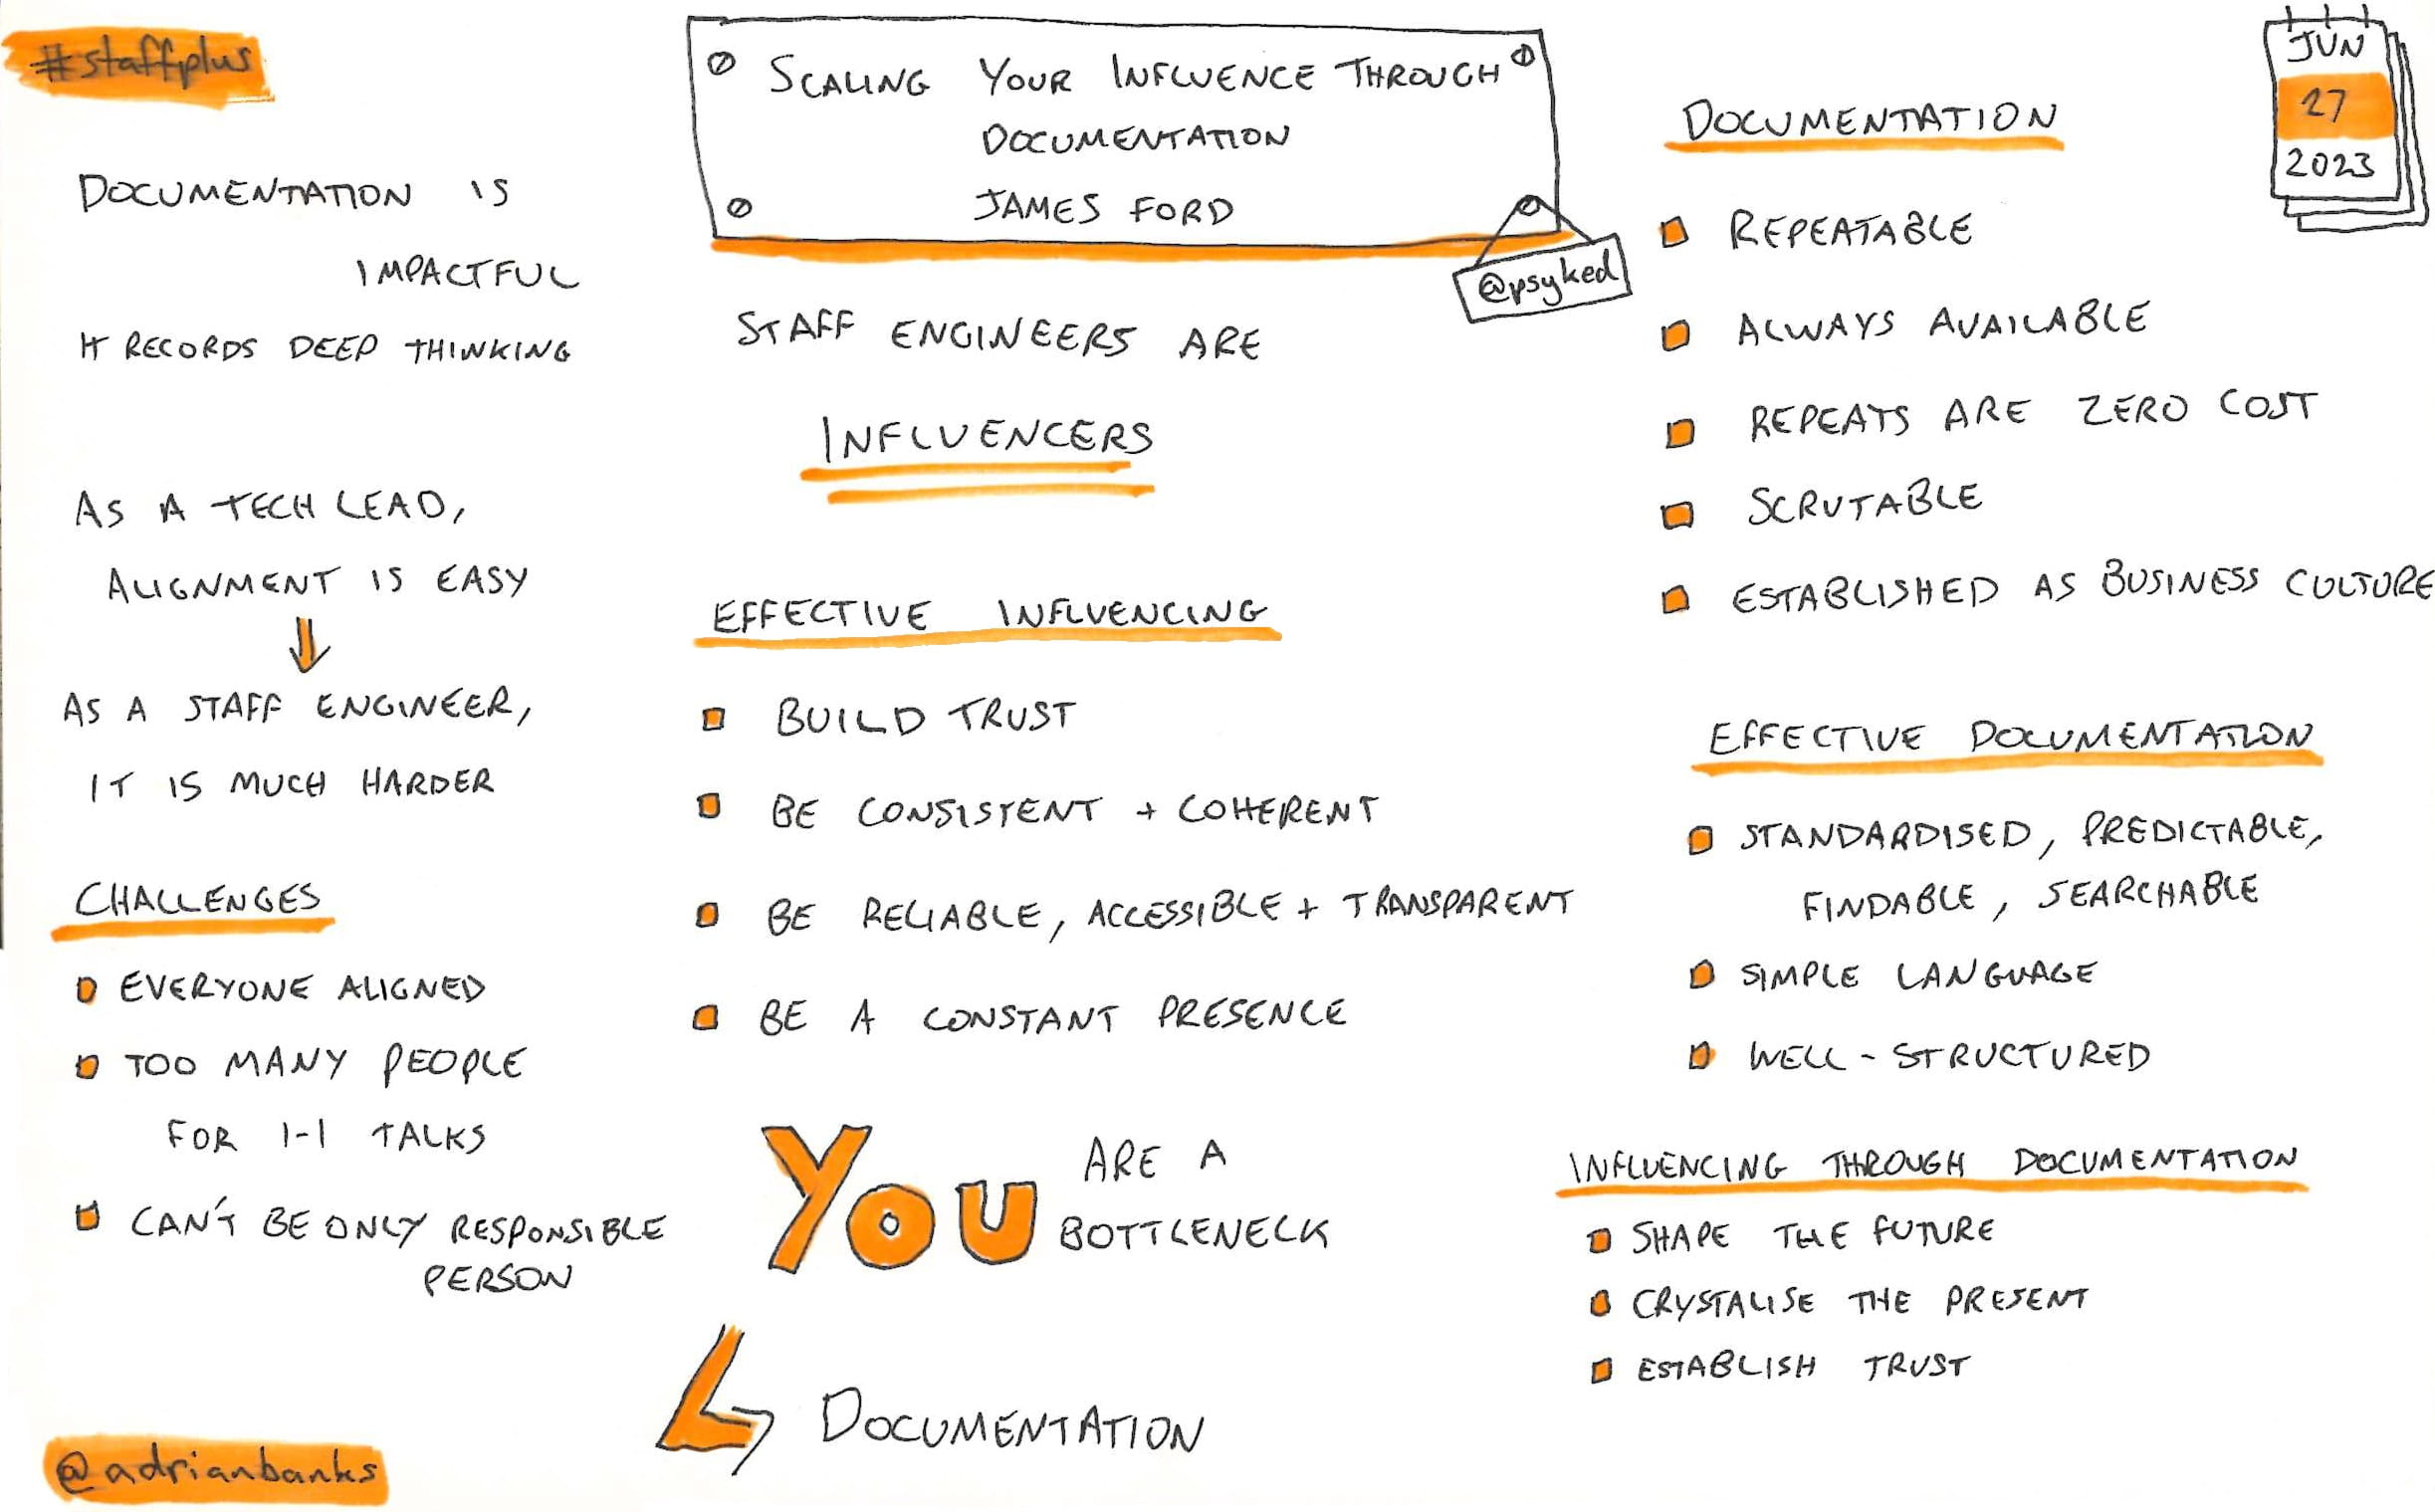 #staffplus
SCALING YOUR INFLUENCE THROUGH
DOCUMENTATION
JAMES FORD
@psyked
JUN
27
2023
DOCUMENTATION IS
IMPACTFUL
IT RECORDS DEEP THINKING
AS A TECH LEAD,
ALIGNMENT IS EASY
AS A STAFF ENGINEER,
IT IS MUCH HARDER
CHALLENGES
EVERYONE ALIGNED
TOO MANY PEOPLE
FOR 1-1 TALKS
CAN'T BE ONLY RESPONSIBLE
PERSON
@adrianbanks
STAFF ENGINEERS ARE
INFLUENCERS
EFFECTIVE INFLUENCING
BUILD TRUST
BE CONSISTENT + COHERENT
BE RELIABLE, ACCESSIBLE + TRANSPARENT
BE A CONSTANT PRESENCE
YOU ARE A
BOTTLENECK
DOCUMENTATION
DOCUMENTATION
REPEATABLE
ALWAYS AVAILABLE
REPEATS ARE ZERO COST
SCRUTABLE
ESTABLISHED AS BUSINESS CULTURE
EFFECTIVE DOCUMENTATION
STANDARDISED, PREDICTABLE,
FINDABLE, SEARCHABLE
SIMPLE LANGUAGE
WELL-STRUCTURED
INFLUENCING THROUGH DOCUMENTATION
SHAPE THE FUTURE
CRYSTALISE THE PRESENT
ESTABLISH TRUST